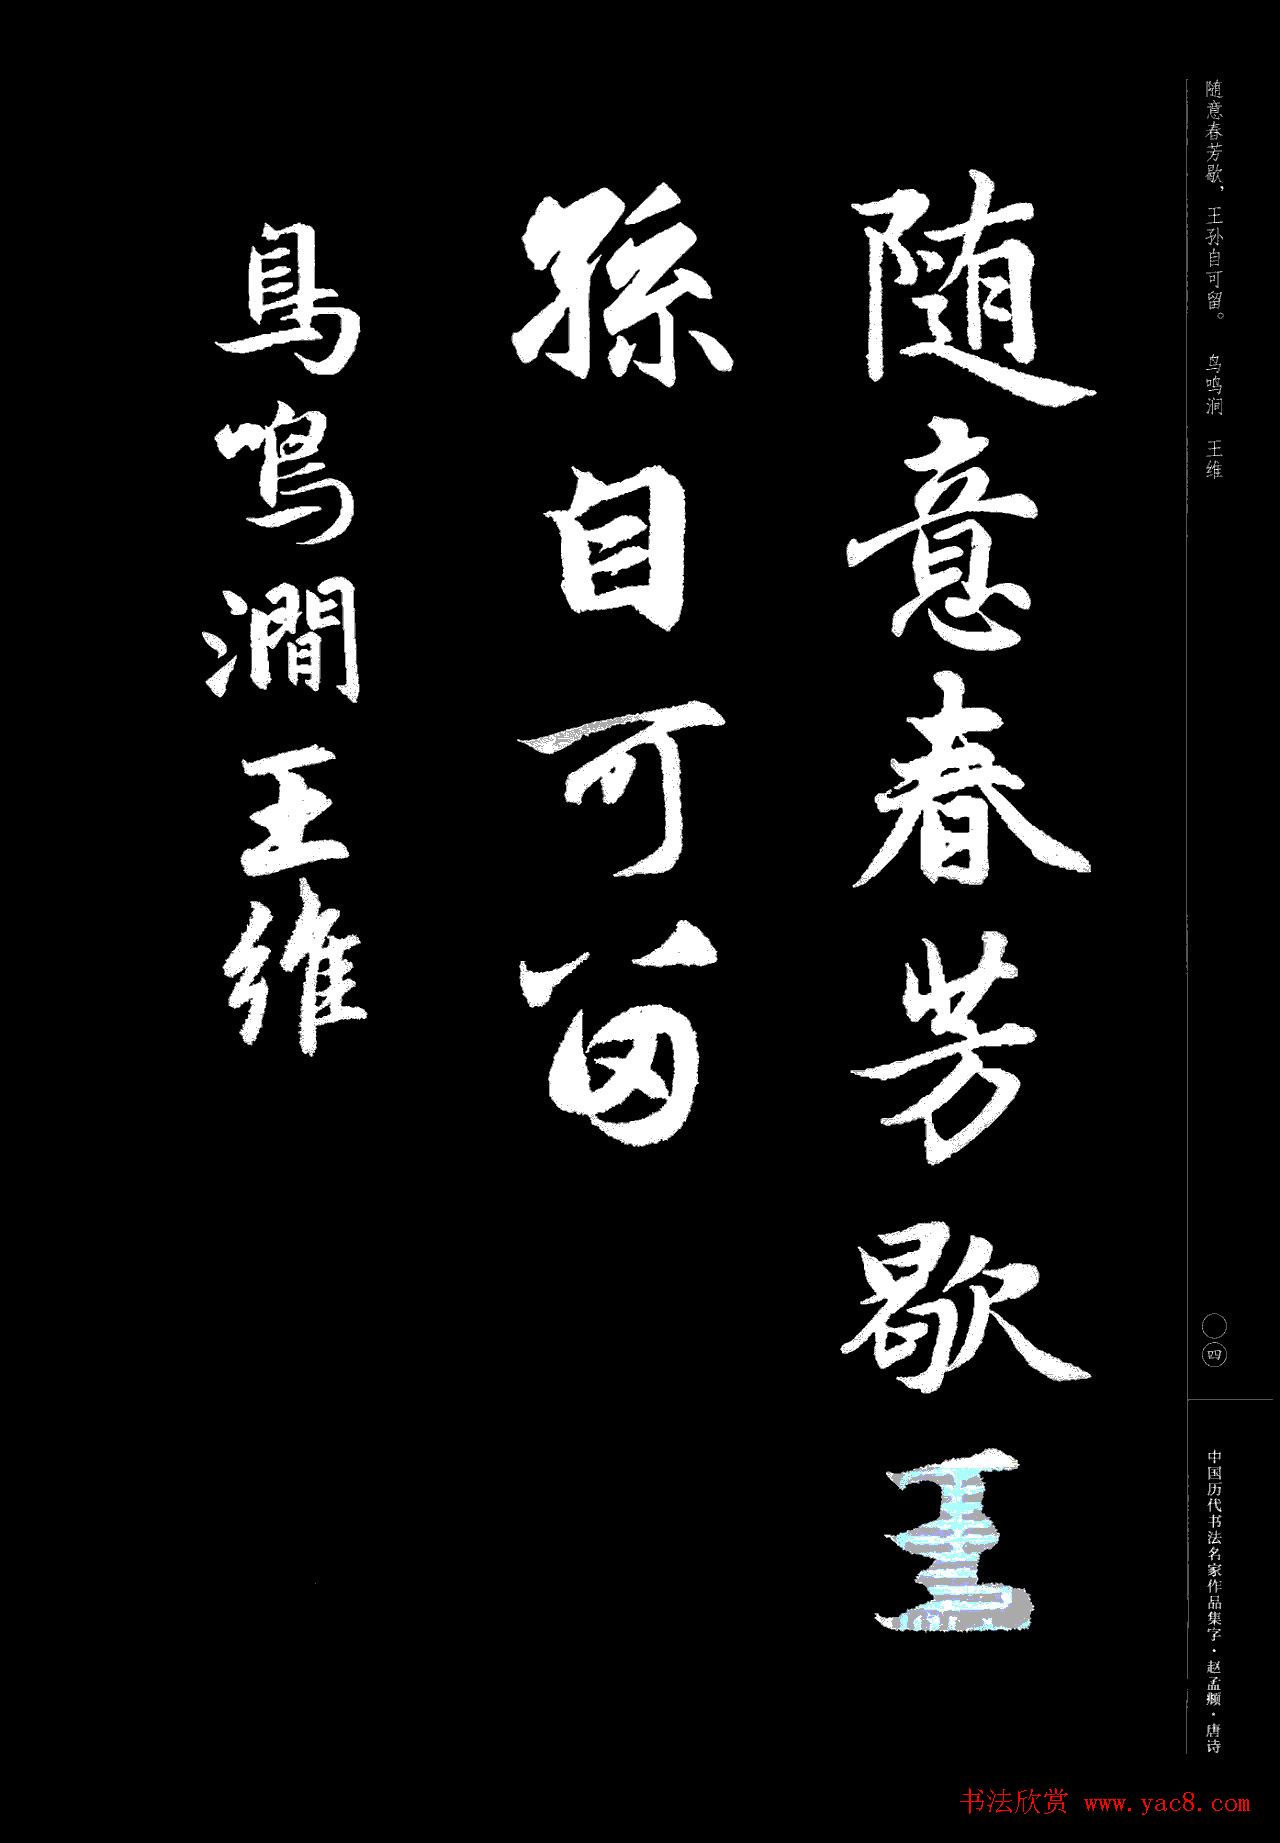 随意春芳歇王
孫自可留
鳥鳴澗王維
随意春芳歇，王孙自可留。 鸟鸣涧 王维
〇四
中国历代书法名家作品集字·赵孟頫·唐诗
书法欣赏 www.yac8.com